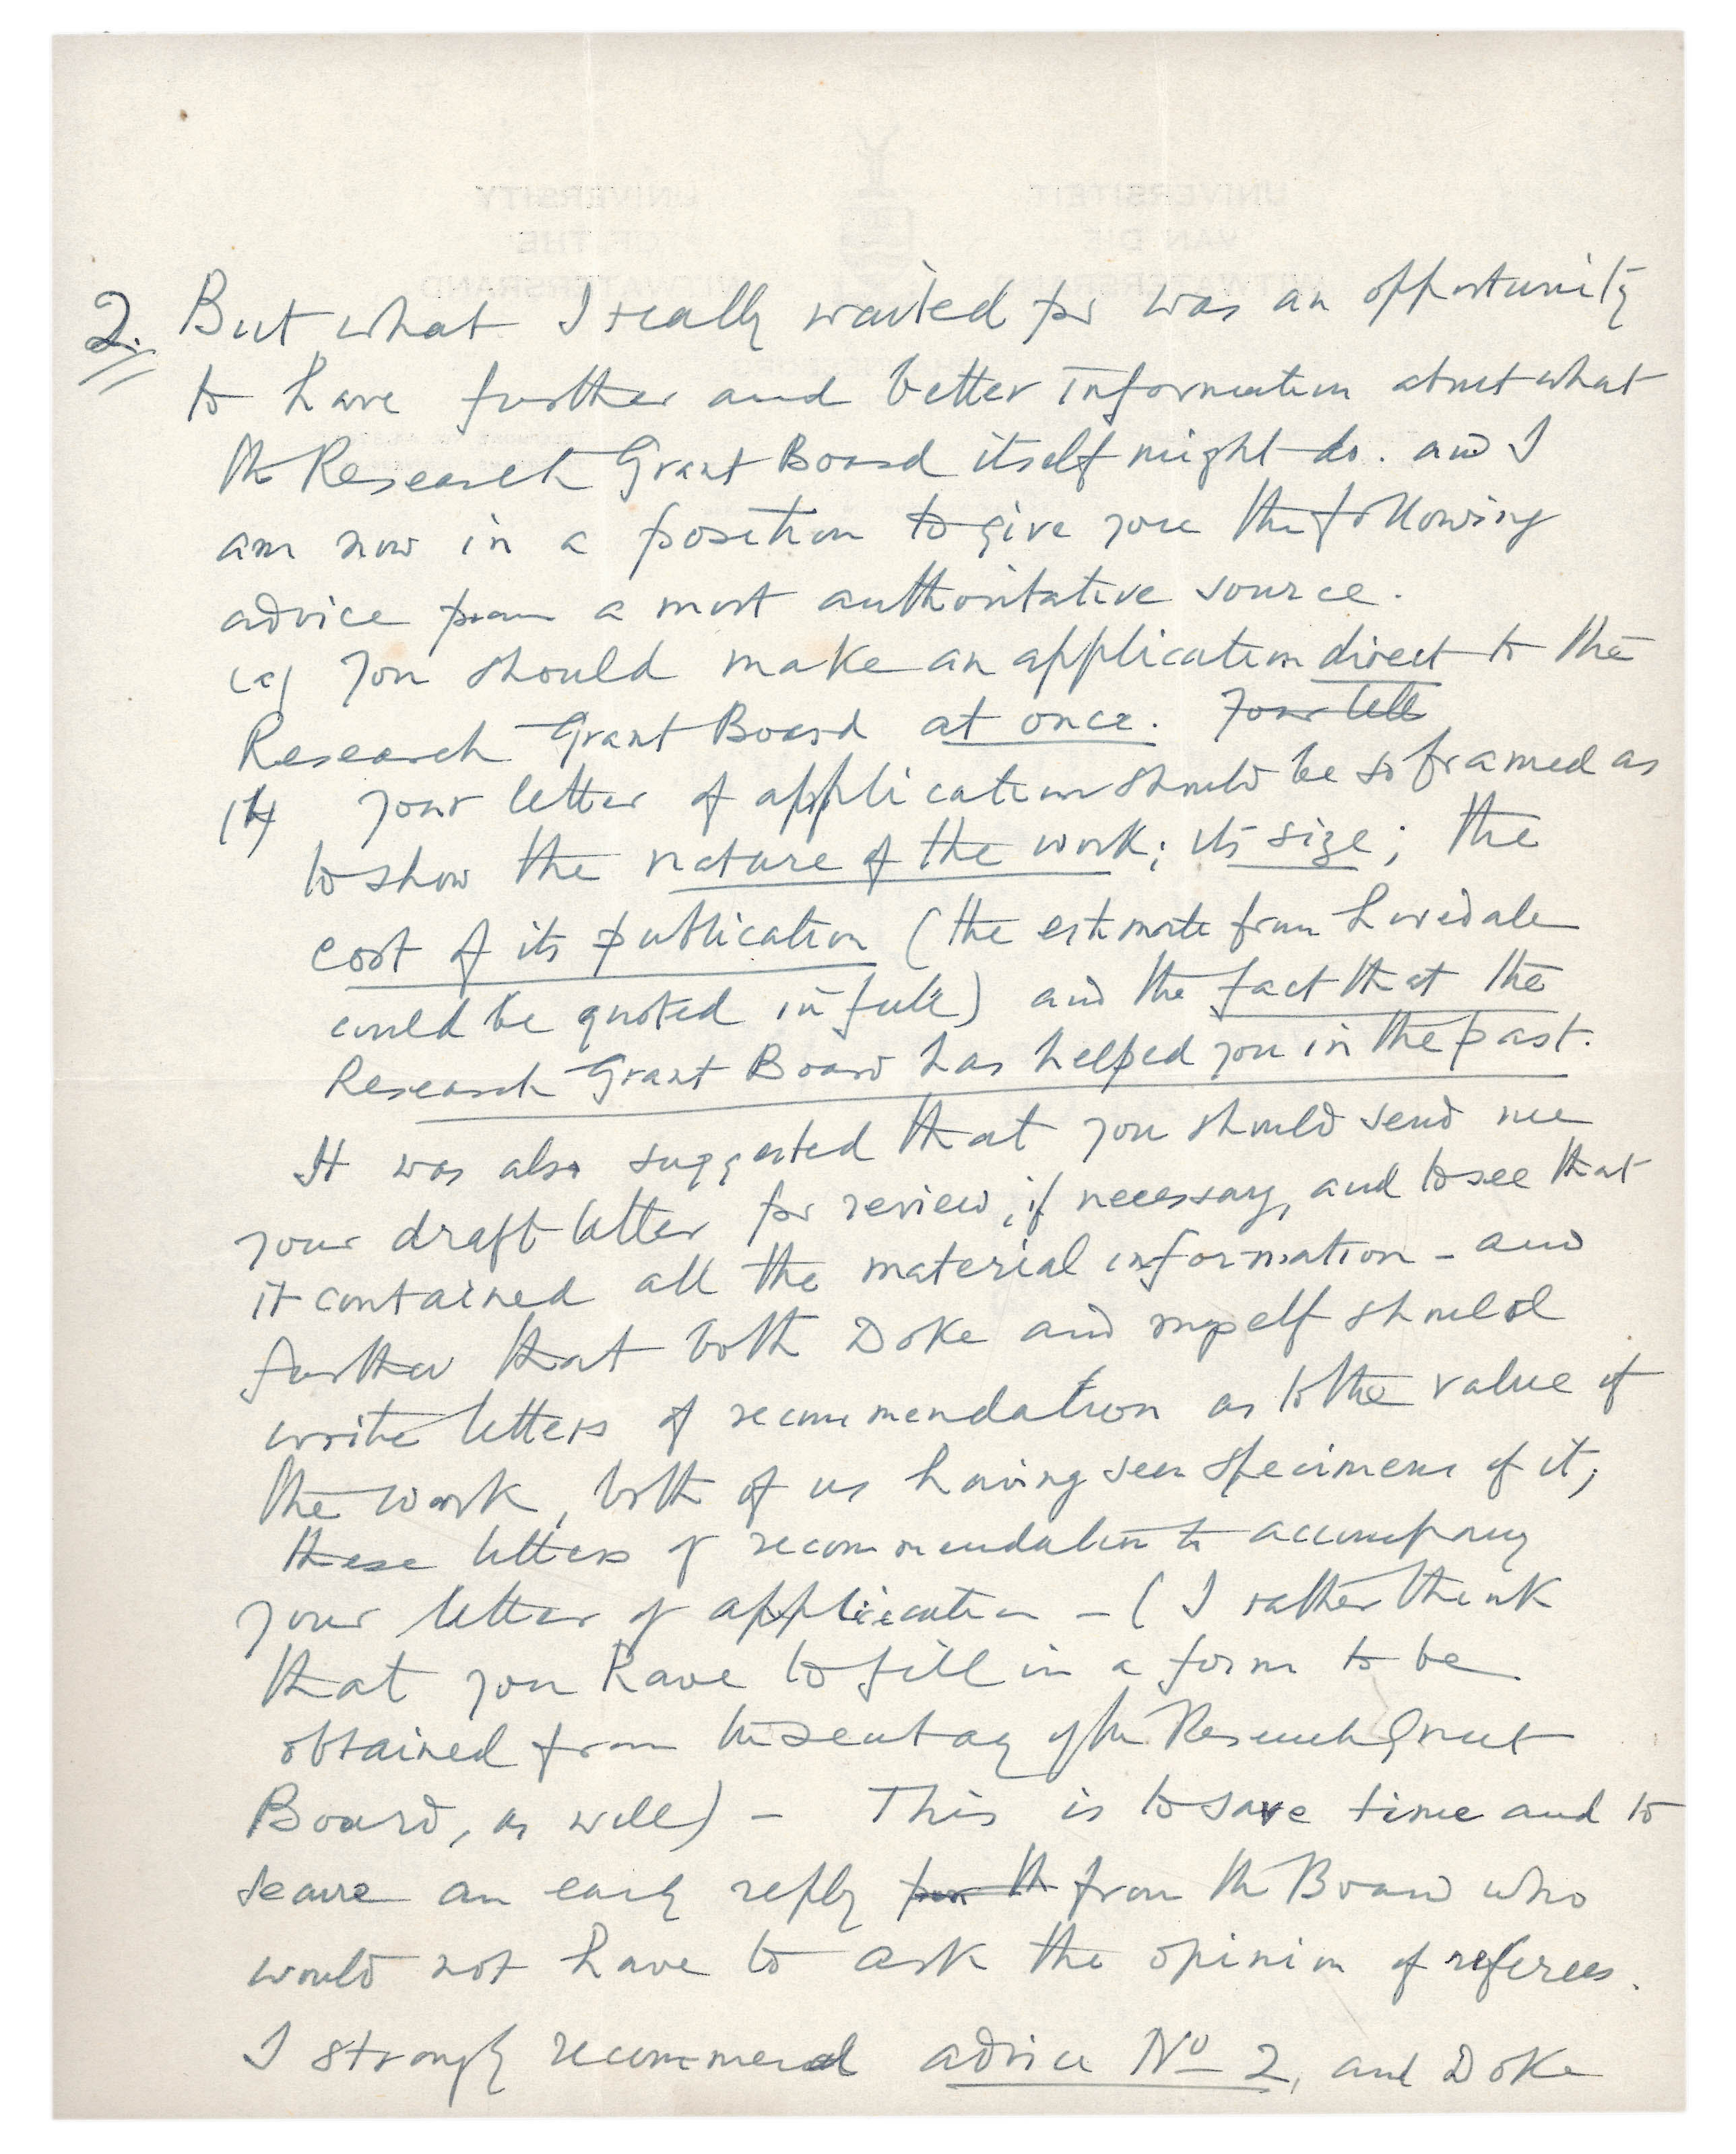 UNIVERSITY
OF THE
WITWATERSRAND
UNIVERSITEIT
VAN DIE
WITWATERSRAND
2. But what I really waited for was an opportunity
to have further and better information about what
the Research Grant Board itself might do. and I
am now in a position to give you the following
advice from a most authoritative source.
(a) You should make an application direct to the
Research Grant Board at once. Your lett
(b) Your letter of application should be so framed as
to show the nature of the work; its size; the
cost of its publication (the estimate from Lovedale
could be quoted in full) and the fact that the
Research Grant Board has helped you in the past.
It was also suggested that you should send me
your draft letter for review, if necessary, and to see that
it contained all the material information – and
further that both Doke and myself should
write letters of recommendation as to the value of
the work, both of us having seen specimens of it;
these letters of recommendation to accompany
your letter of application – (I rather think
that you have to fill in a form to be
obtained from the Secretary of the Research Grant
Board, as well) – This is to save time and to
secure an early reply from th from the Board who
would not have to ask the opinion of referees.
I strongly recommend advice No 2, and Doke